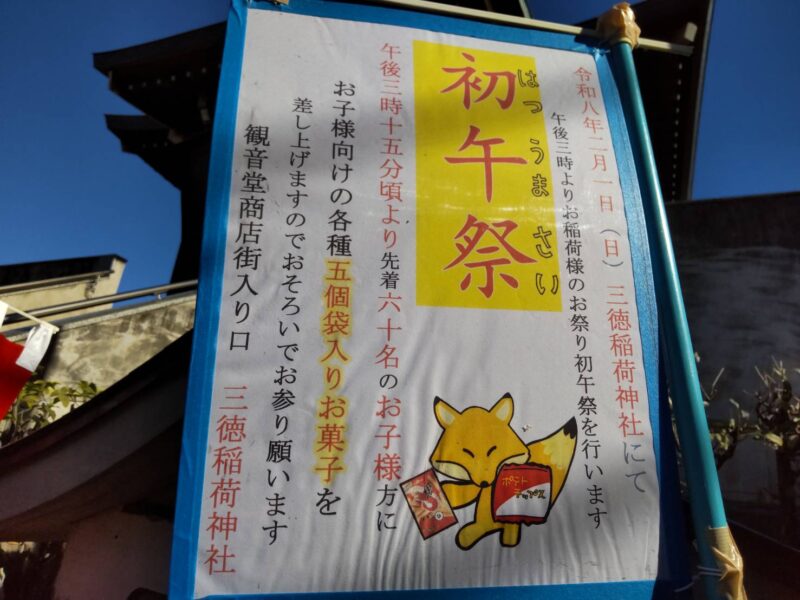 令和八年二月一日（日）三徳稲荷神社にて
午後三時よりお稲荷様のお祭り初午祭を行います
はつうまさい
初午祭
午後三時十五分頃より先着六十名のお子様方に
お子様向けの各種五個袋入りお菓子を
差し上げますのでおそろいでお参り願います
観音堂商店街入り口　三徳稲荷神社
ポテト
チップス